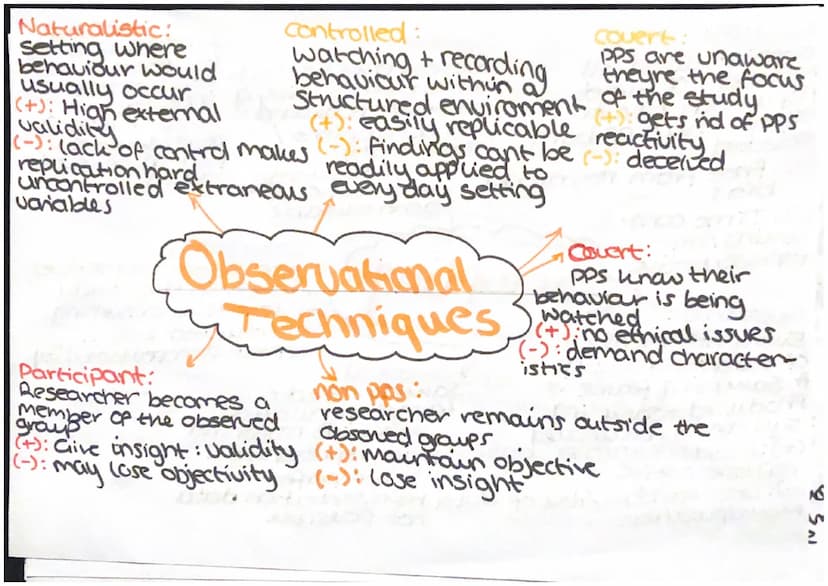 Naturalistic:
setting where
behaviour would
usually occur
(+): High external
validity
(-): lack of control makes
replication hard
uncontrolled extraneous
variables
controlled:
watching + recording
behaviour within a
structured enviroment
(+): easily replicable
(-): findings cant be
readily applied to
every day setting
covert:
pps are unaware
theyre the focus
of the study
(+): gets rid of pps
reactivity
(-): deceived
Observational
Techniques
Covert:
pps know their
behaviour is being
watched
(+): no ethical issues
(-): demand character-
istics
Participant:
Researcher becomes a
member of the observed
group
(+): Give insight: validity
(-): may lose objectivity
non pps:
researcher remains outside the
observed groups
(+): maintain objective
(-): lose insight